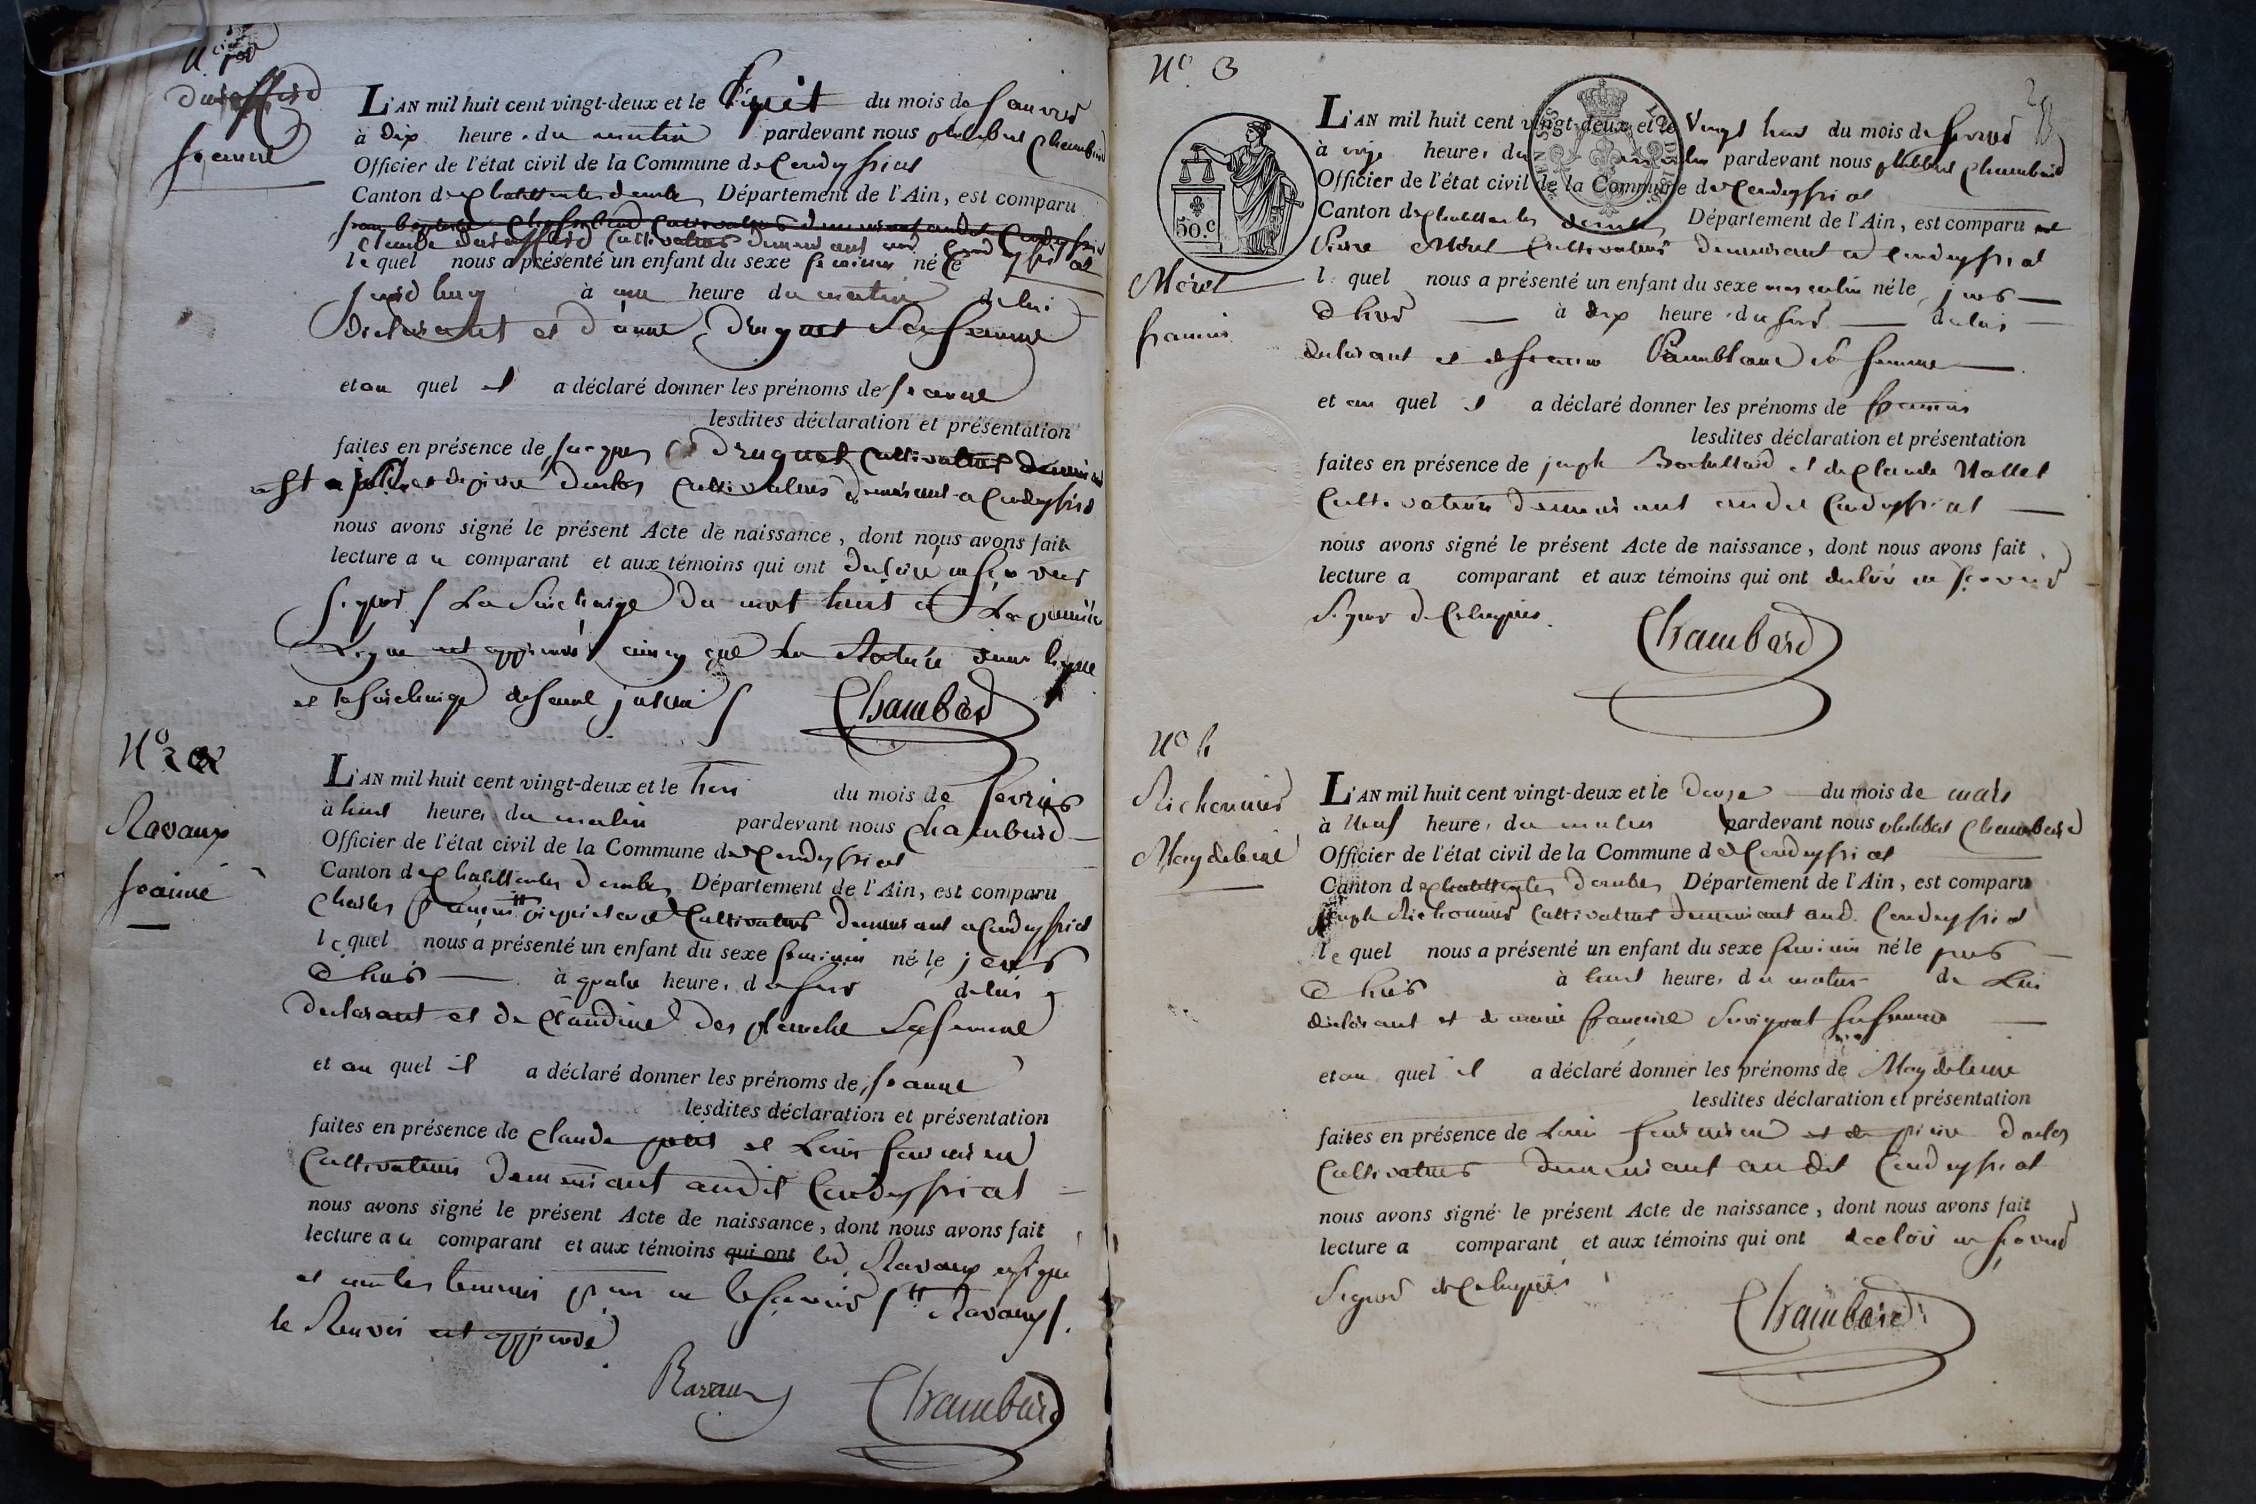 duraffard
Jeanne
L'AN mil huit cent vingt-deux et le huit du mois de Janvier
à dix heure du matin pardevant nous philibert Chambard
Officier de l'état civil de la Commune de Condeyssiat
Canton de Chatillon les dombes Département de l'Ain, est comparu
cultivateur demeurant audit Condeyssiat
claude duraffard cultivateur demeurant Condeyssiat
lequel nous a présenté un enfant du sexe feminin né le
à une heure du matin de lui
declarant et d'anne druguet sa femme
et au quel il a déclaré donner les prénoms de Jeanne
lesdites déclaration et présentation
faites en présence de Jacques druguet cultivateur
et de pierre darlos cultivateurs demeurant a Condeyssiat
nous avons signé le présent Acte de naissance, dont nous avons fait
lecture au comparant et aux témoins qui ont declaré ne savoir
signer / La Surcharge du mot huit et La premiere
Ligne est approuvé ainsy que La rature d'une ligne
et la surcharge
Chambard
N° 2
Ravaux
Jeanne
L'AN mil huit cent vingt-deux et le trois du mois de fevrier
à huit heure, du matin pardevant nous Chambard
Officier de l'état civil de la Commune de Condeyssiat
Canton de Chatillon les dombes Département de l'Ain, est comparu
Charles proprietaire et Cultivateur demeurant a Condeyssiat
lequel nous a présenté un enfant du sexe feminin né le jour
d'hier à quatre heure, du soir de lui
declarant et de Claudine des planche Sa femme
et au quel il a déclaré donner les prénoms de Jeanne
lesdites déclaration et présentation
faites en présence de Claude petit et Louis
Cultivateurs demeurant audit Condeyssiat
nous avons signé le présent Acte de naissance, dont nous avons fait
lecture au comparant et aux témoins qui ont led. Ravaux a signé
et non les temoins pour ne le savoir / Ravaux /.
le Renvoi est approuvé
Ravaux
Chambard
N° 3
50. C
Moret
francois
L'AN mil huit cent vingt-deux et le Vingt huit du mois de fevrier
à onze heure, du matin pardevant nous philibert Chambard
Officier de l'état civil de la Commune de Condeyssiat
Canton de Chatillon les dombes Département de l'Ain, est comparu
Pierre Moret Cultivateur demeurant a Condeyssiat
l quel nous a présenté un enfant du sexe masculin né le jour
d'hier à dix heure, du soir de lui
declarant et de sa femme
et au quel il a déclaré donner les prénoms de francois
lesdites déclaration et présentation
faites en présence de joseph Bochettard et de Claude Nallet
Cultivateurs demeurant audit Condeyssiat
nous avons signé le présent Acte de naissance, dont nous avons fait
lecture a comparant et aux témoins qui ont declaré ne savoir
Signer de ce requis.
Chambard
N° 4
Richonnier
Magdeleine
L'AN mil huit cent vingt-deux et le douze du mois de mars
à neuf heure, du matin pardevant nous philibert Chambard
Officier de l'état civil de la Commune de Condeyssiat
Canton de Chatillon les dombes Département de l'Ain, est comparu
joseph Richonnier Cultivateur demeurant aud. Condeyssiat
lequel nous a présenté un enfant du sexe feminin né le jour
d'hier à huit heure, du matin de Lui
declarant et de marie francoise sa femme
et au quel il a déclaré donner les prénoms de Magdeleine
lesdites déclaration et présentation
faites en présence de Louis et de pierre darlos
Cultivateurs demeurant audit Condeyssiat
nous avons signé le présent Acte de naissance, dont nous avons fait
lecture a comparant et aux témoins qui ont declaré ne savoir
Signer de ce requis
Chambard